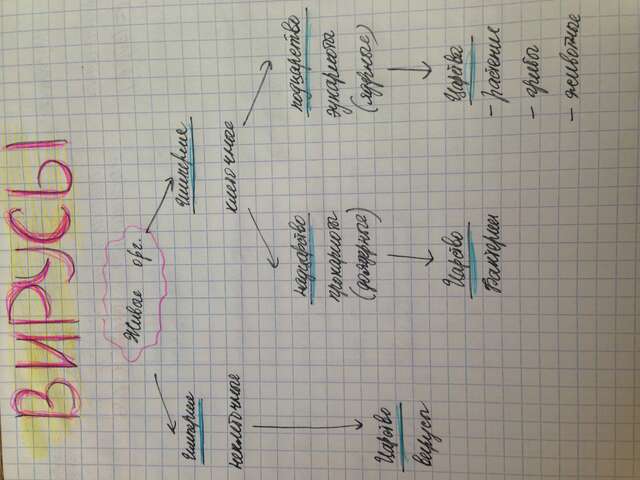 ВИРУСЫ
Живые орг.
империя
неклеточные
Царство
вирусы
империя
клеточные
надцарство
прокариоты
(доядерные)
Царство
Бактерии
подцарство
эукариоты
(ядерные)
Царства
- растения
- грибы
- животные